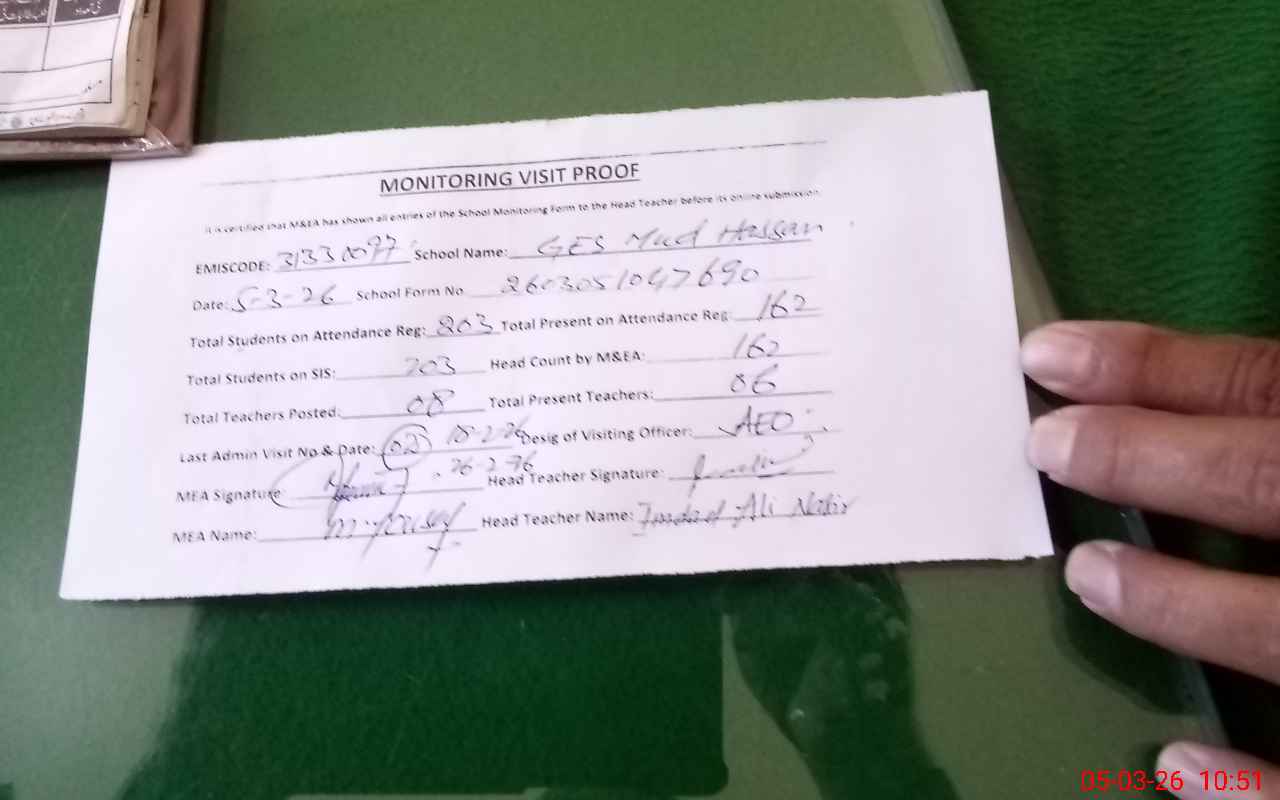 MONITORING VISIT PROOF
It is certified that M&EA has shown all entries of the School Monitoring Form to the Head Teacher before its online submission
EMISCODE: 31330097 School Name: GES Mud Hassan
Date: 5-3-26 School Form No 2603051047690
Total Students on Attendance Reg: 203 Total Present on Attendance Reg: 162
Total Students on SIS: 203 Head Count by M&EA: 162
Total Teachers Posted: 08 Total Present Teachers: 06
Last Admin Visit No & Date: 02 18-2-26 Desig of Visiting Officer: AEO
26-2-26
MEA Signature: Head Teacher Signature:
MEA Name: M Yousaf Head Teacher Name: Imdad Ali Nasir
05-03-26 10:51